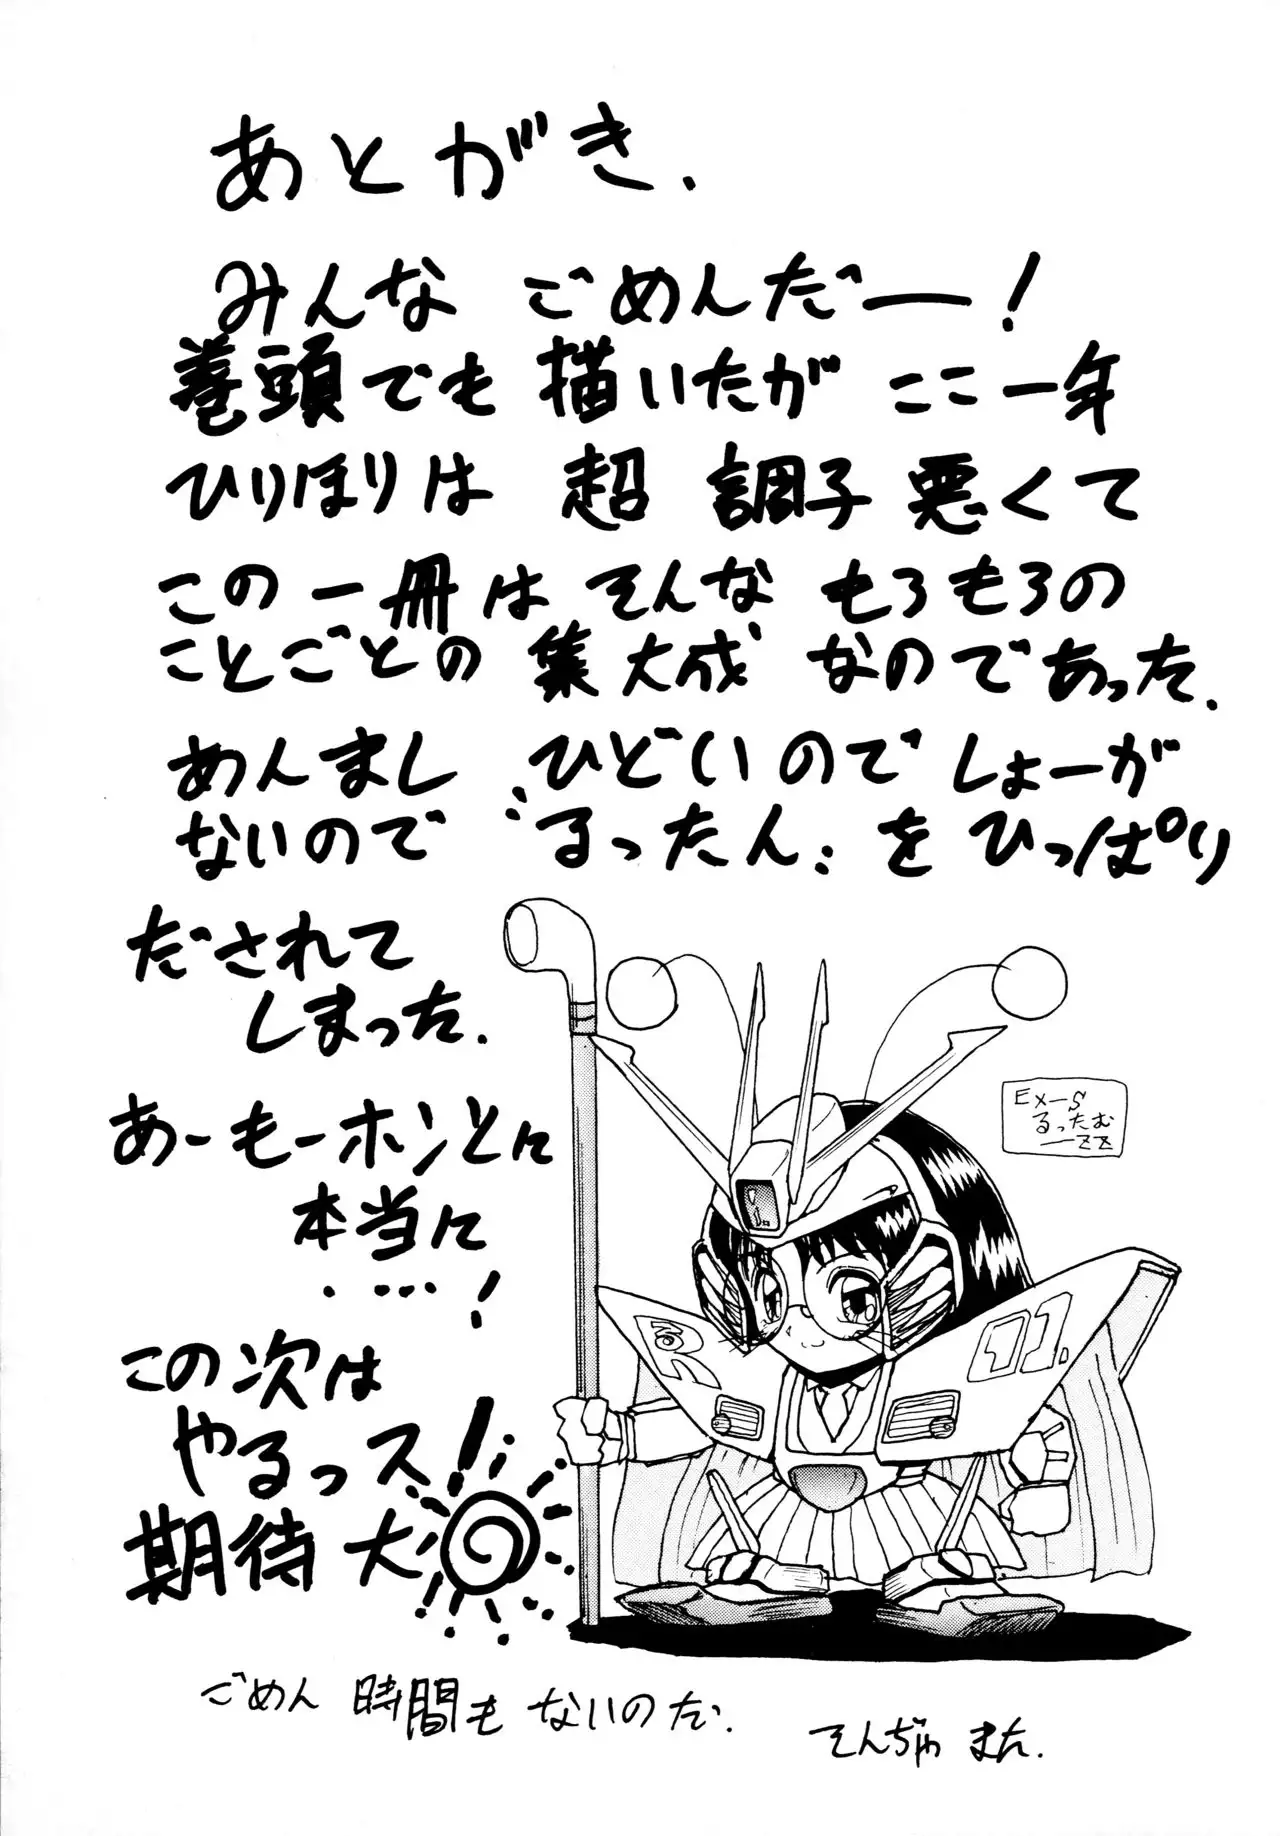 あとがき.
みんな ごめんだー!
巻頭でも描いたが ここ一年
ひりほりは 超 調子悪くて
この一冊は そんな もろもろの
ことごとの 集大成 なのであった.
めんまし、ひどいので しょーが
ないので "るったん" を ひっぱり
だされて
しまった.
あーもーホントに
本当に
・・・・!
この次は
やるっス!
期待大
EX-S
るったむ
-ZZ
るR
01.
ごめん 時間も ないのだ.
そんぢゃ また.